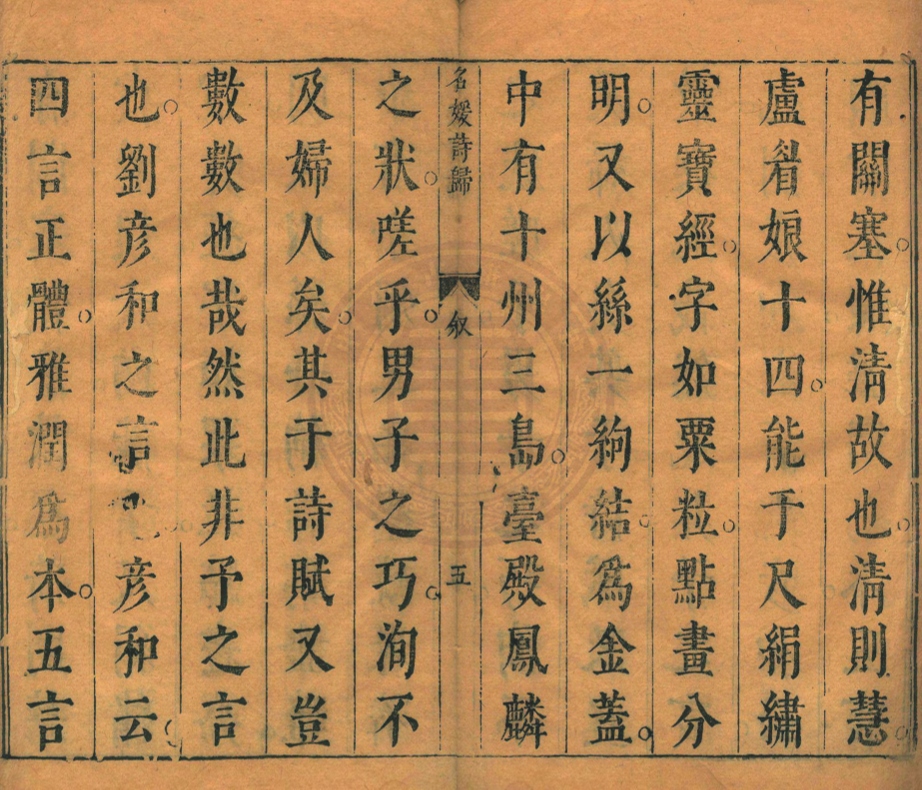 有關塞惟清故也清則慧
盧眉娘十四能于尺絹繡
靈寶經字如粟粒點畫分
明又以絲一絇結爲金蓋
中有十州三島臺殿鳳麟
名媛詩歸
叙
五
之狀嗟乎男子之巧洵不
及婦人矣其于詩賦又豈
數數也哉然此非予之言
也劉彦和之言也彦和云
四言正體雅潤爲本五言